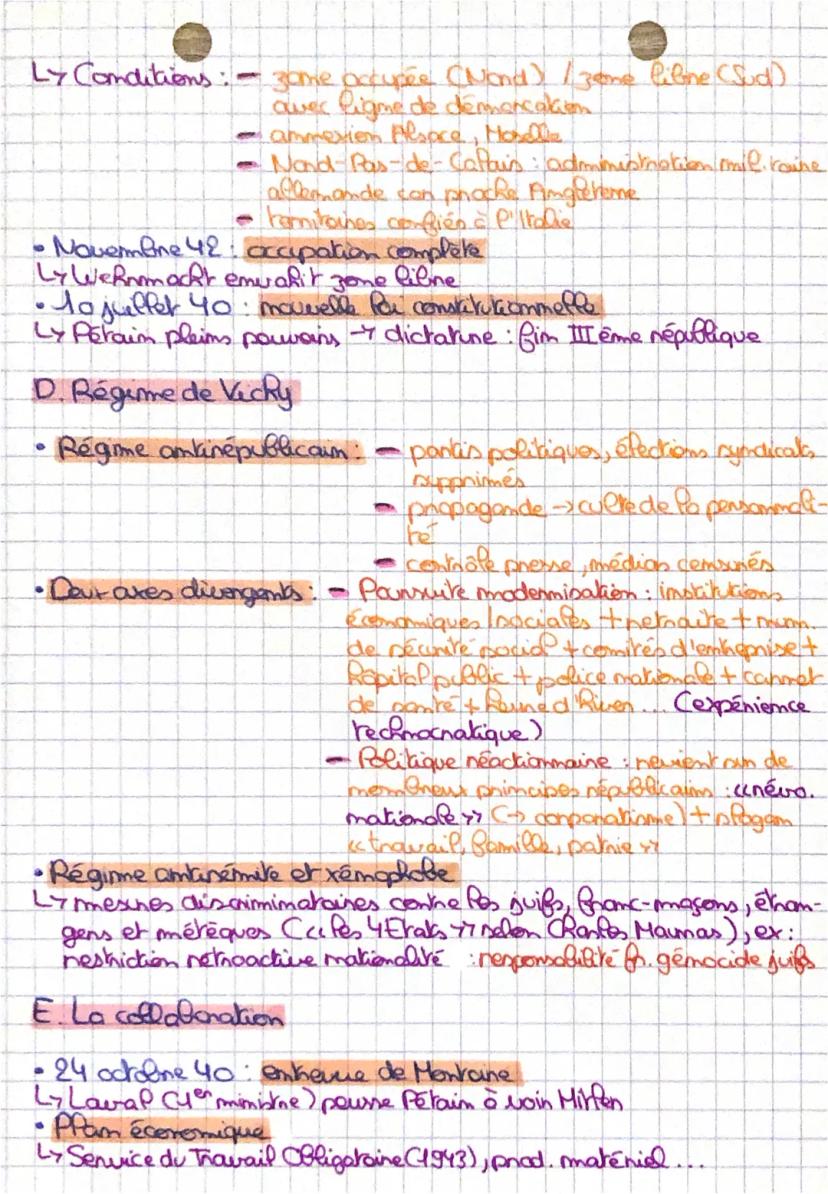 ↳ Conditions : - zone occupée (Nord) / zone libre (Sud)
avec ligne de démarcation
- annexion Alsace, Moselle
- Nord-Pas-de-Calais : administration militaire
allemande car proche Angleterre
- territoires confiés à l'Italie
• Novembre 42 : occupation complète
↳ Wehrmacht envahit zone libre
• 10 juillet 40 : nouvelle loi constitutionnelle
↳ Pétain pleins pouvoirs → dictature : fin IIIème république
D. Régime de Vichy
• Régime antirépublicain : - partis politiques, élections syndicats
supprimés
- propagande → culte de la personnali-
té
- contrôle presse, médias censurés
• Deux axes divergents : - Poursuite modernisation : institutions
économiques/sociales + retraite + num.
de sécurité social + comités d'entreprise +
hôpital public + police nationale + carnet
de santé + heure d'hiver... (expérience
technocratique)
- Politique réactionnaire : revient sur de
nombreux principes républicains : «révo.
nationale» (→ corporatisme) + slogan
«travail, famille, patrie»
• Régime antisémite et xénophobe
↳ mesures discriminatoires contre les juifs, franc-maçons, étran-
gers et métèques («les 4 Etats» selon Charles Maurras), ex :
restriction rétroactive nationalité : responsabilité fr. génocide juifs
E. La collaboration
• 24 octobre 40 : entrevue de Montoire
↳ Laval (1er ministre) pousse Pétain à voir Hitler
• Plan économique
↳ Service du Travail Obligatoire (1943), prod. matériel...